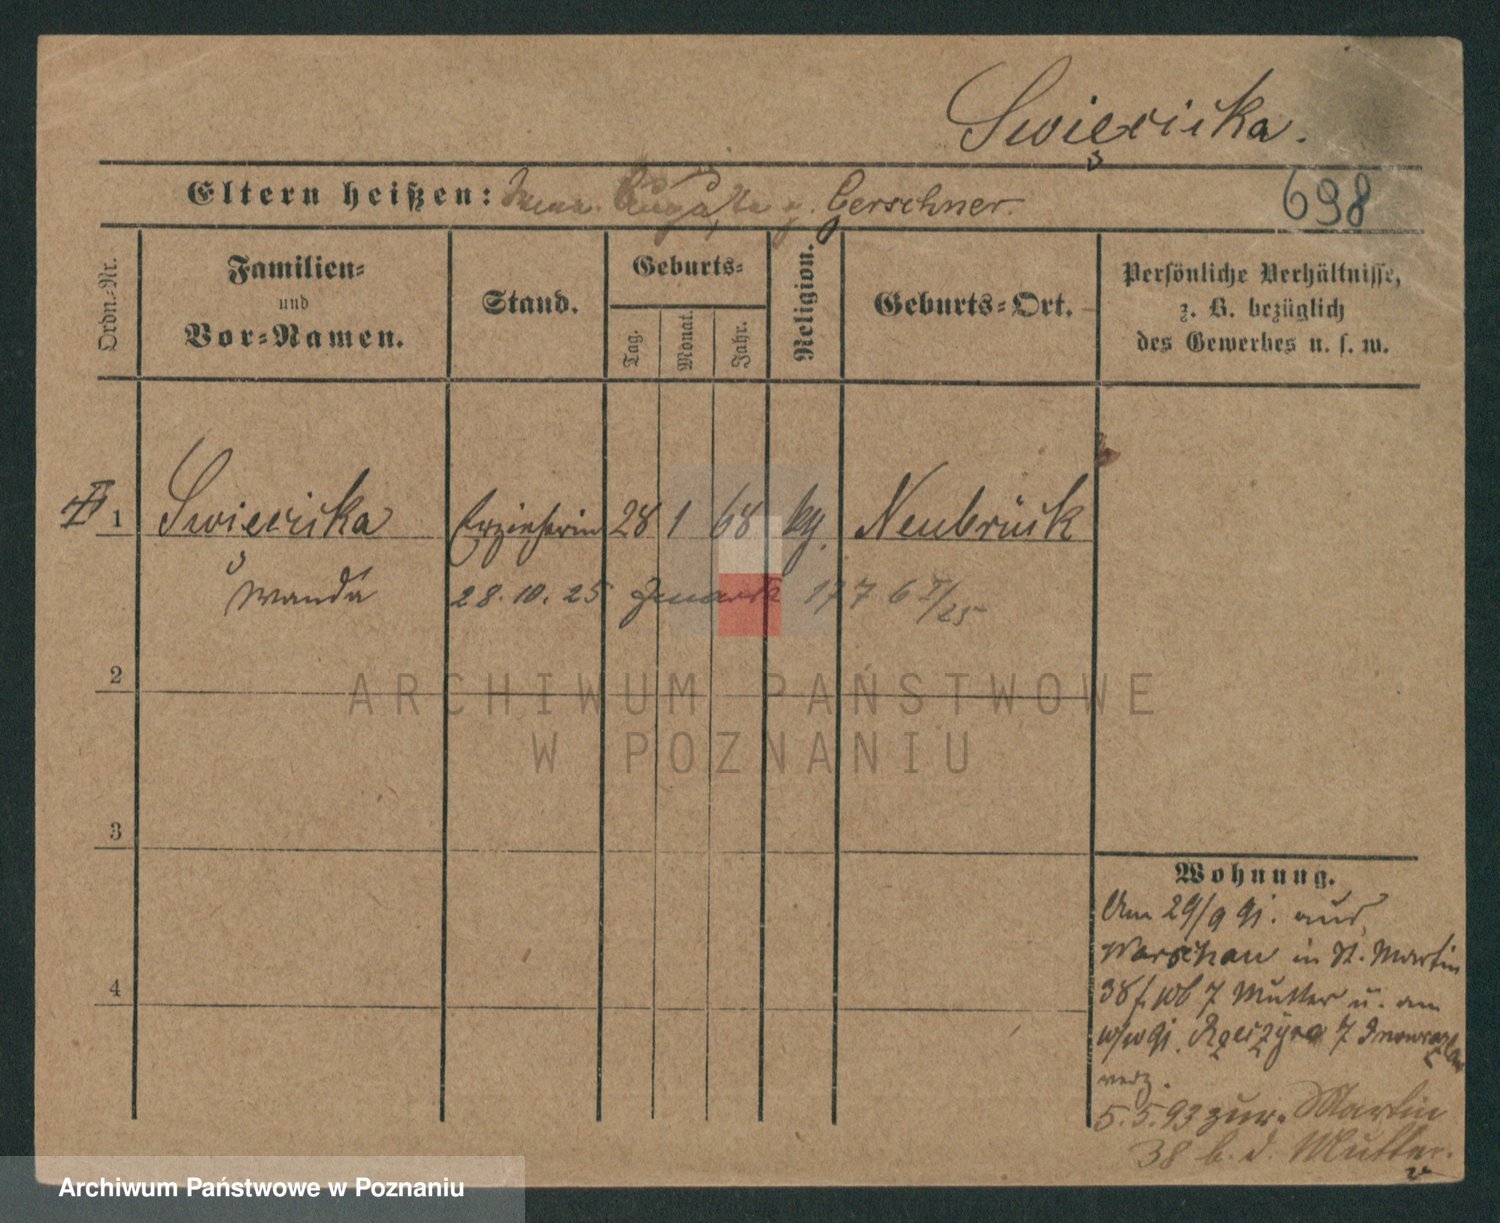 Swięcicka.
Eltern heißen: u. Gerschner.
698
Ordn.-Nr.
Familien-
und
Vor-Namen.
Stand.
Geburts-
Tag.
Monat.
Jahr.
Religion.
Geburts-Ort.
Persönliche Verhältnisse,
z. B. bezüglich
des Gewerbes u. s. w.
1 Swięcicka Erzieherin 28 1 68 kg. Neubrück
Wanda 28.10.25 177 6 I/25
2
ARCHIWUM PAŃSTWOWE
W POZNANIU
3
4
Wohnung.
Am 29/9 91. aus
Warschau in St. Martin
38 f. Mutter u. am
91.
verz.
5.5.93 zur. Martin
38 b. d. Mutter.
Archiwum Państwowe w Poznaniu